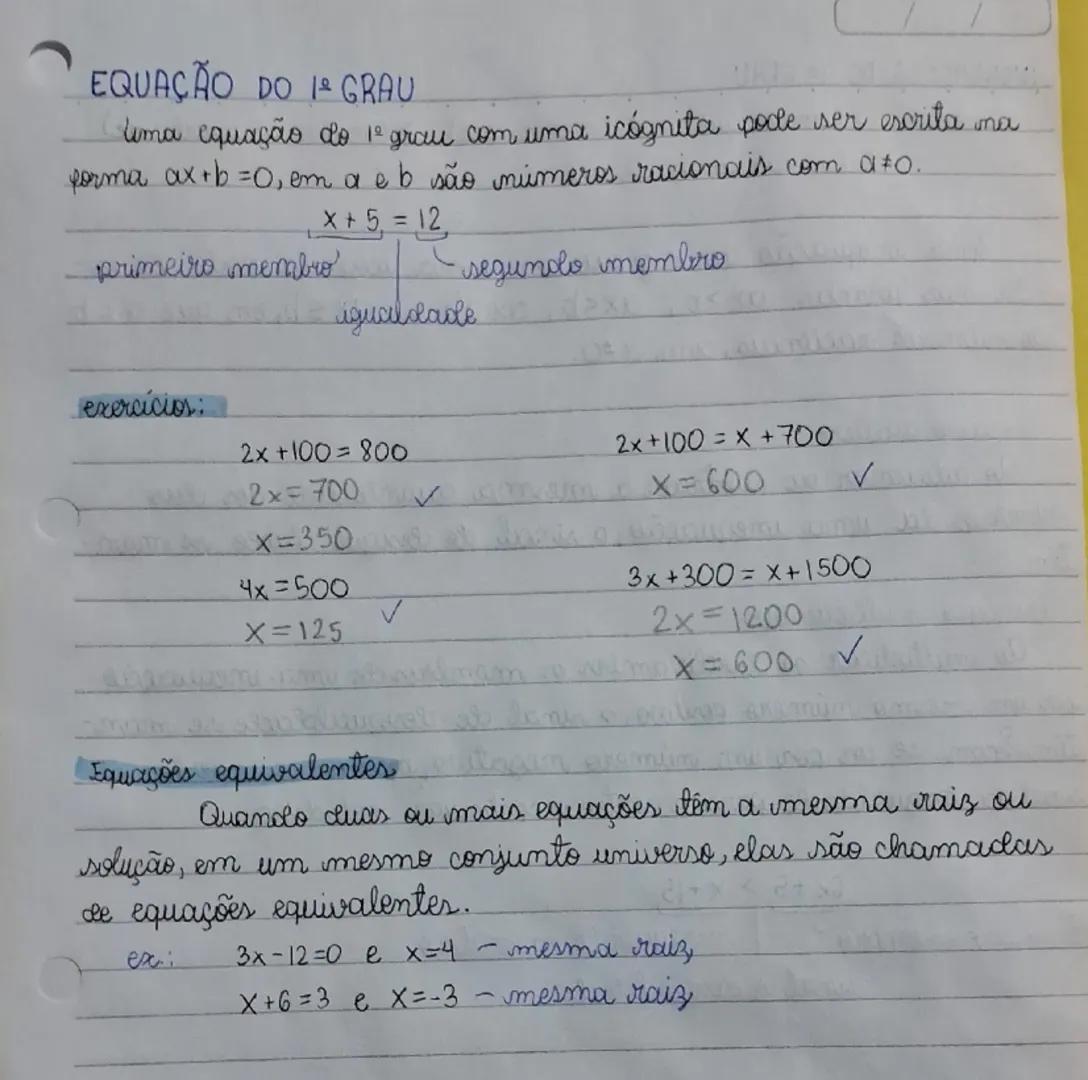 EQUAÇÃO DO 1º GRAU
Uma equação do 1º grau com uma icógnita pode ser escrita na
forma ax+b=0, em a e b são números racionais com a≠0.
x+5 = 12
primeiro membro segundo membro
igualdade
exercícios:
2x+100=800 2x+100=x+700
2x=700 ✓ x=600 ✓
x=350
4x=500 3x+300=x+1500
x=125 ✓ 2x=1200
x=600 ✓
Equações equivalentes
Quando duas ou mais equações têm a mesma raiz ou
solução, em um mesmo conjunto universo, elas são chamadas
de equações equivalentes.
ex.: 3x-12=0 e x=4 - mesma raiz
x+6=3 e x=-3 - mesma raiz